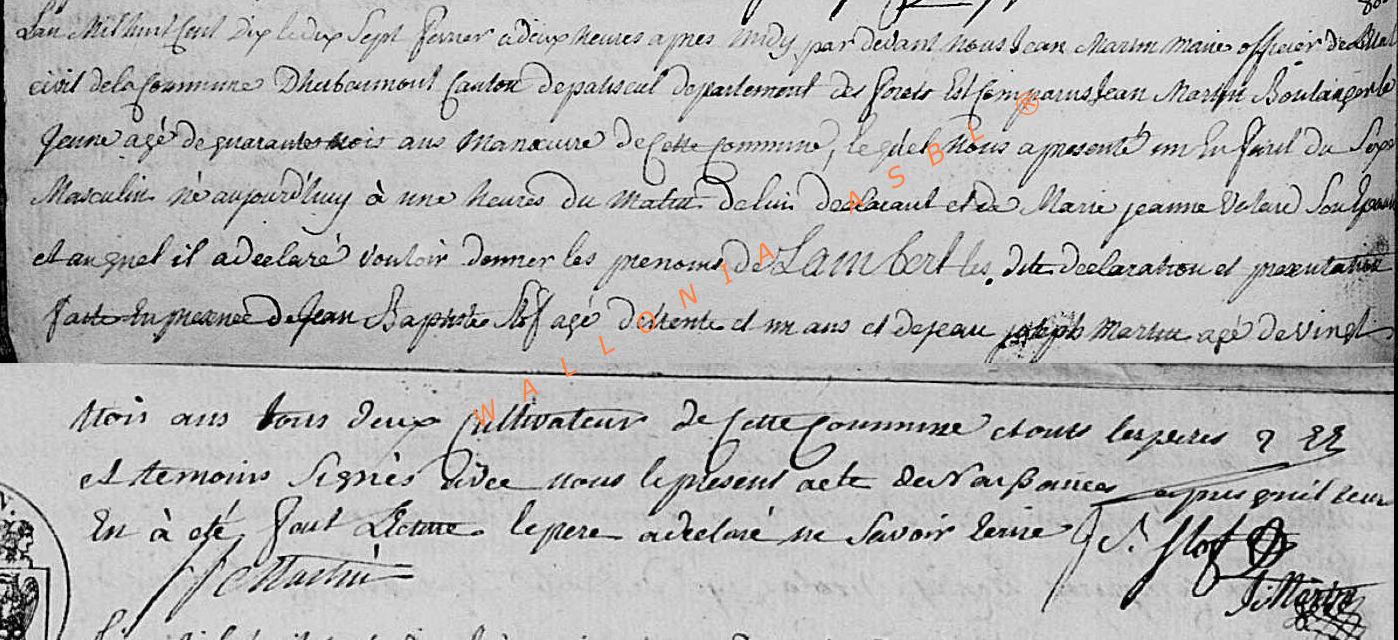 L'an Mil huit Cent Dix le dix Sept fevrier à deux heures apres midy par devant Nous Jean Martin Maire officier de L'Etat
civil de la Commune D'hubaumont Canton de paliseul departement des forets Est Comparus Jean Martin Boulanger le
Jeune agé de quarante trois ans Manœuvre de Cette Commune, le quel Nous a presenté un Enfant du Sexe
Masculin né aujourd'huy à une heures du Matin de lui declarant et de Marie jeanne
et auquel il a declaré vouloir donner les prenoms de Lambert les dite declaration et presentation
faite En presence de Jean Baptiste Slof agé de trente et un ans et de jean joseph Martin agé de vingt
trois ans tous deux Cultivateur de Cette Commune et onts les peres
et temoins Signés avec nous le present acte de Naissances apres qu'il leur
En à été fait Lecture le pere a declaré ne Savoir Ecrire J. Slof
J Martin
J: Martin
WALLONIA ASBL ®